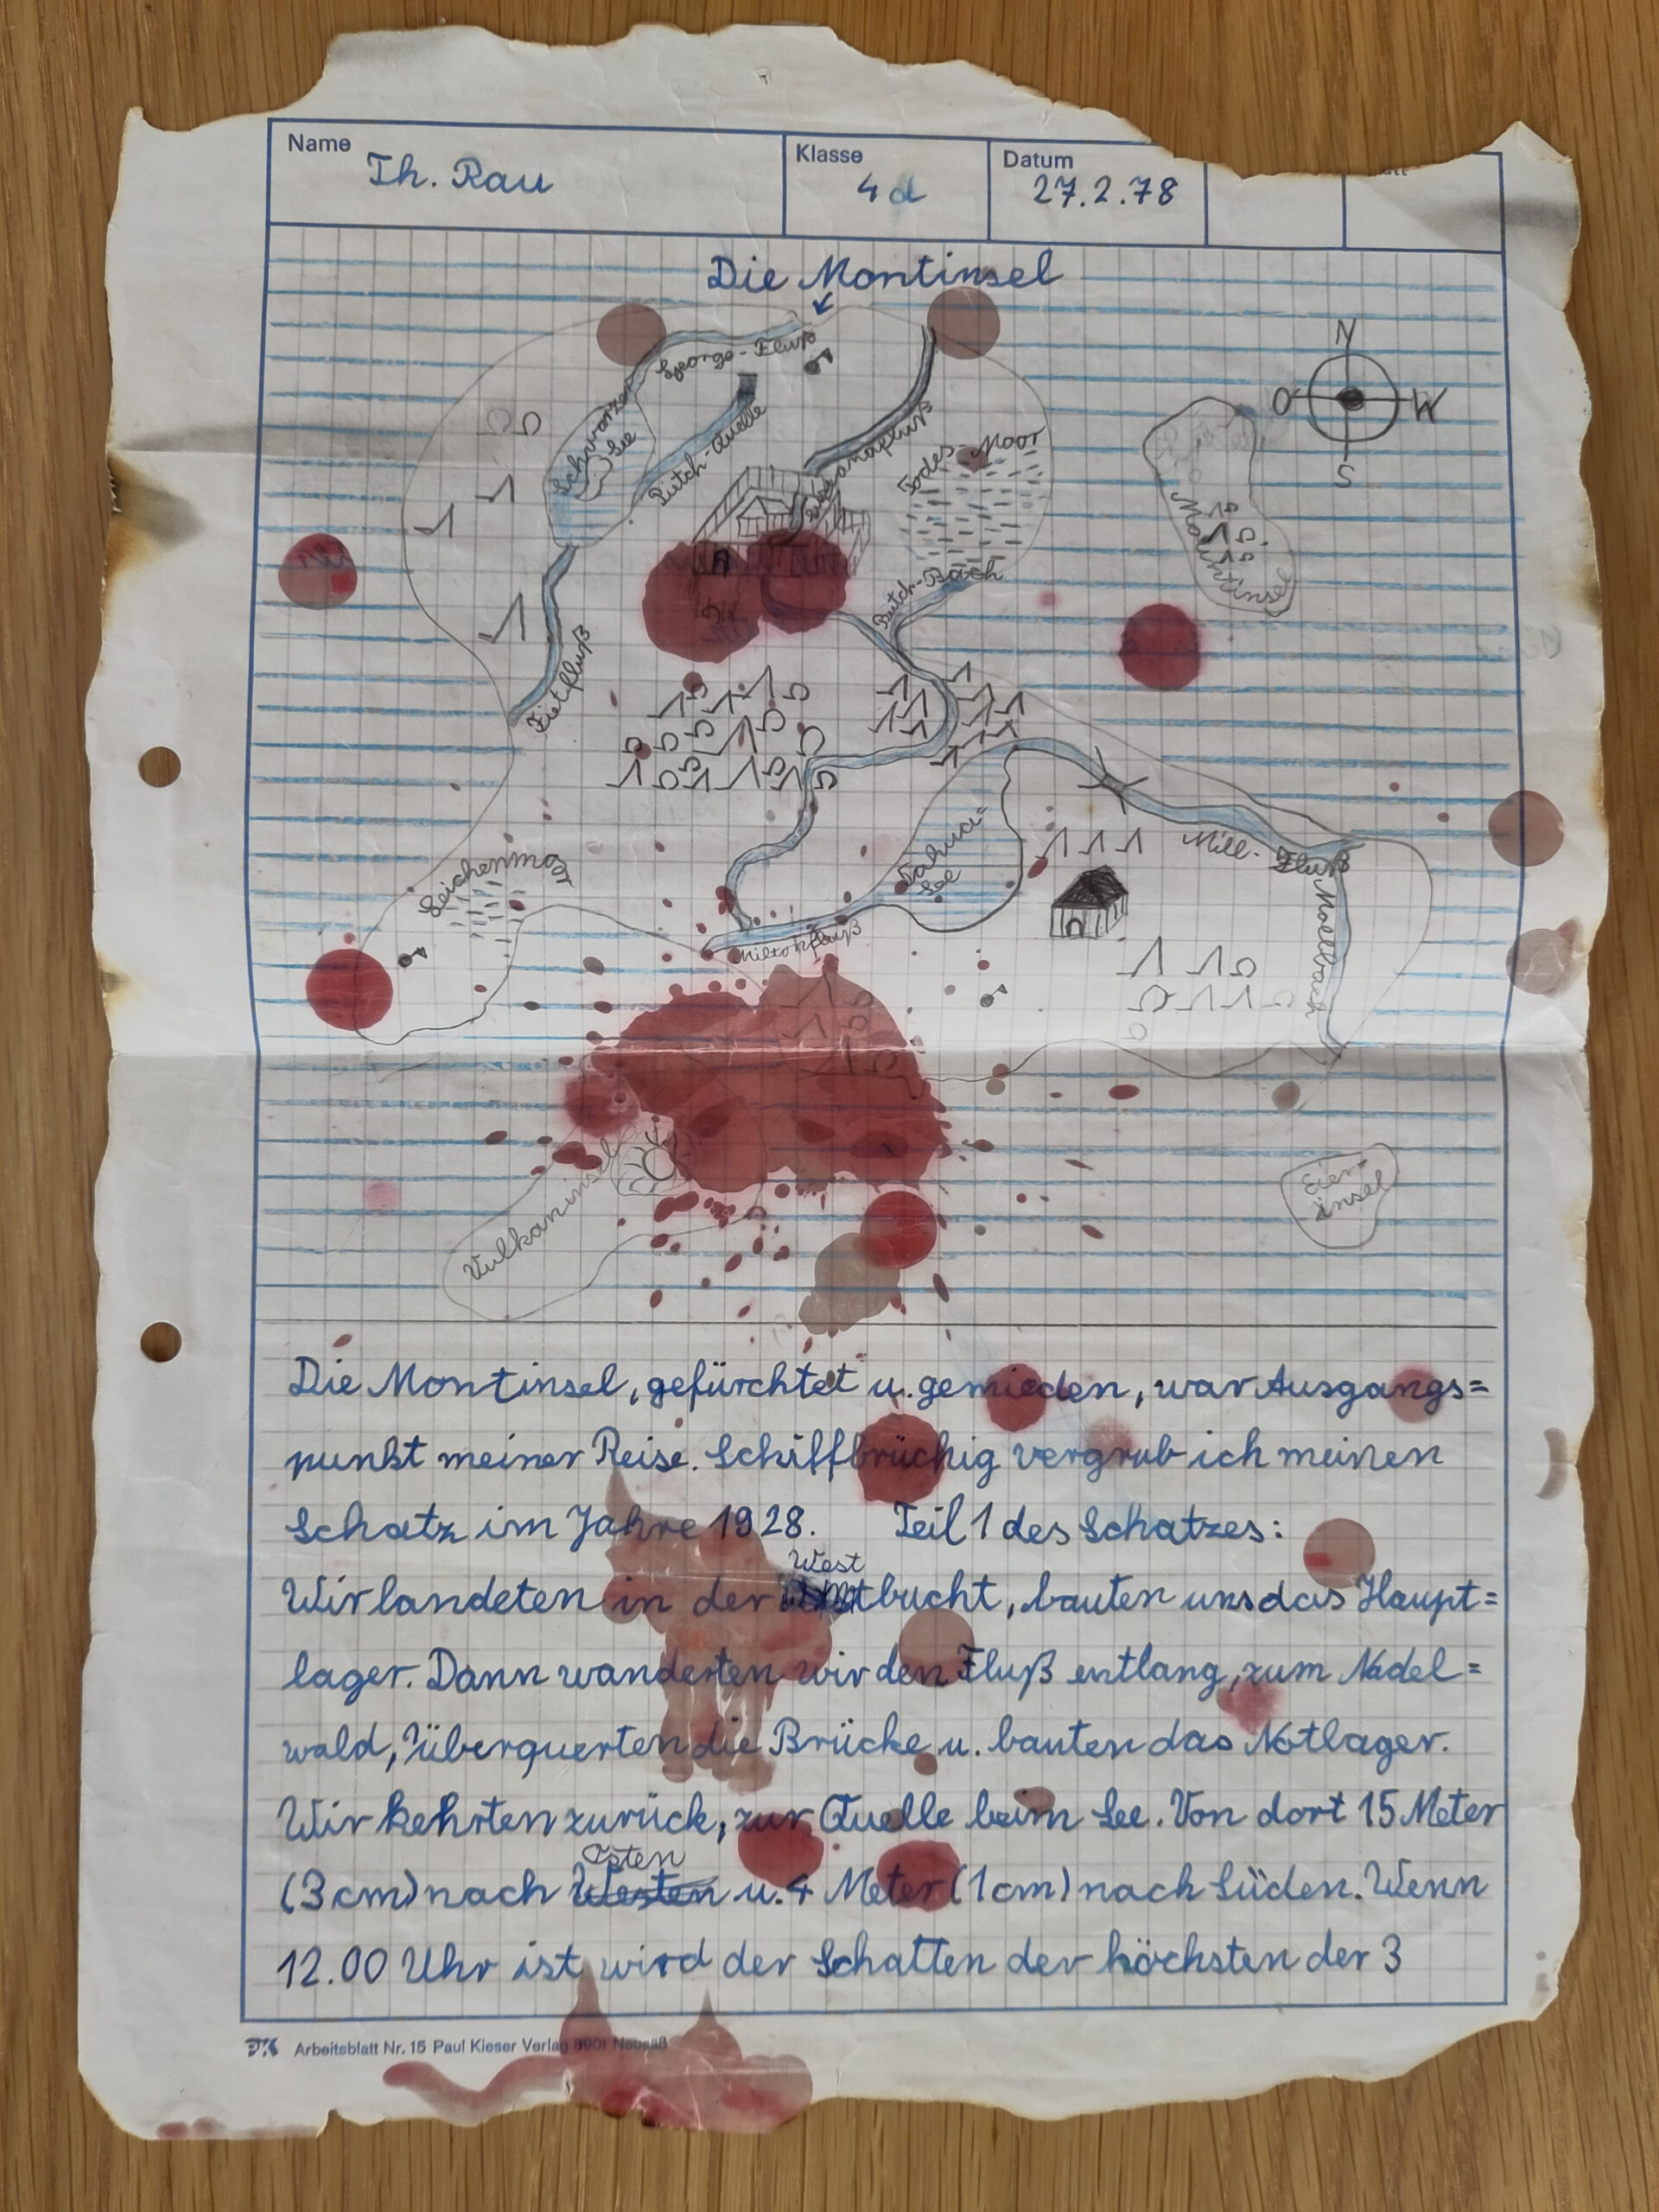 Name Klasse Datum
Th. Rau 4d 27.2.78
Die Montinsel
N
O W
S
George-Fluß
Schwarzer
See
Putch-Quelle
Todes-Moor
Mountinsel
Putch-Bach
Fietfluß
Mill-
Fluß
See
Leichenmoor
Miltonfluß
Moellbach
Vulkaninsel
Eier-
insel
Die Montinsel, gefürchtet u. gemieden, war Ausgangs=
punkt meiner Reise. Schiffbrüchig vergrub ich meinen
Schatz im Jahre 1928. Teil 1 des Schatzes:
West
Wir landeten in der bucht, bauten uns das Haupt=
lager. Dann wanderten wir den Fluß entlang, zum Nadel=
wald, Überquerten die Brücke u. bauten das Notlager.
Wir kehrten zurück, zur Quelle beim See. Von dort 15 Meter
Osten
(3 cm) nach Westen u. 4 Meter (1 cm) nach Süden. Wenn
12.00 Uhr ist wird der Schatten der höchsten der 3
Arbeitsblatt Nr. 15 Paul Kieser Verlag 8901 Neusäß